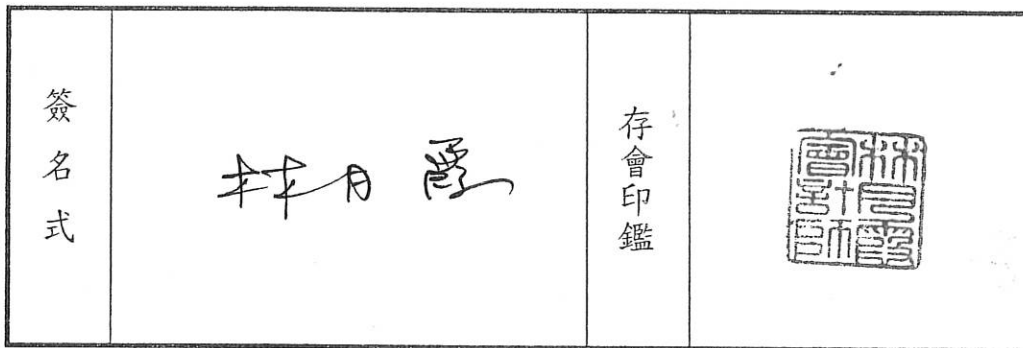 簽名式
林月霞
存會印鑑
林月霞會計師